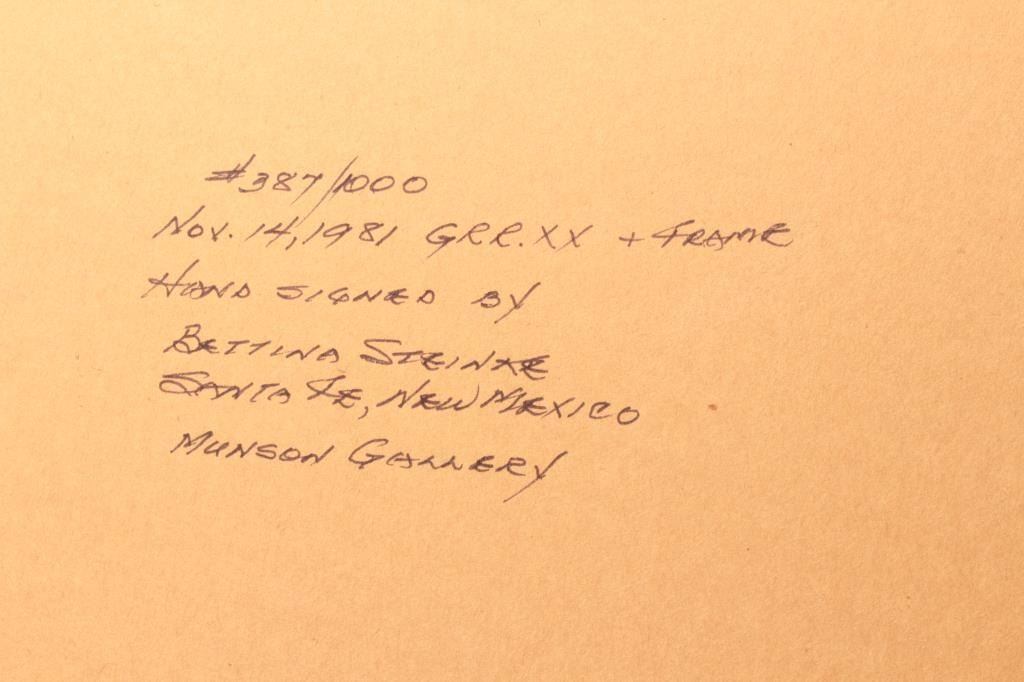 #387/1000
Nov. 14, 1981 GRR.XX + FRAME
HAND SIGNED BY
BETTINA STEINKE
SANTA FE, NEW MEXICO
MUNSON GALLERY